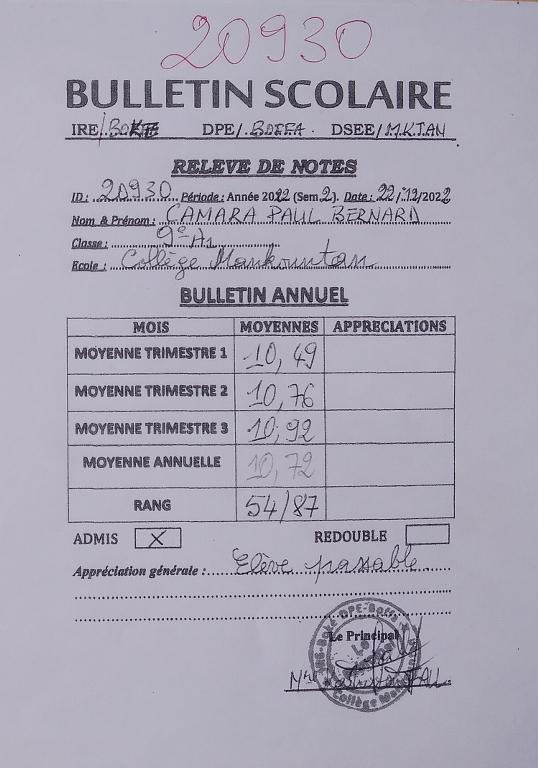 20930
BULLETIN SCOLAIRE
IRE/BOKE DPE/.BOFFA. DSEE/M.KTAN
RELEVE DE NOTES
ID: 20930 Période: Année 2022 (Sem 2.). Date: 22/12/2022
Nom & Prénom: CAMARA PAUL BERNARD
Classe: 9e A1
Ecole: Collège Mankountan
BULLETIN ANNUEL
MOIS MOYENNES APPRECIATIONS
MOYENNE TRIMESTRE 1 10,49
MOYENNE TRIMESTRE 2 10,76
MOYENNE TRIMESTRE 3 10,92
MOYENNE ANNUELLE 10,72
RANG 54/87
ADMIS X REDOUBLE
Appréciation générale: Elève passable
Le Principal
IRE-Boké DPE-Boffa
Le Principal
Collège